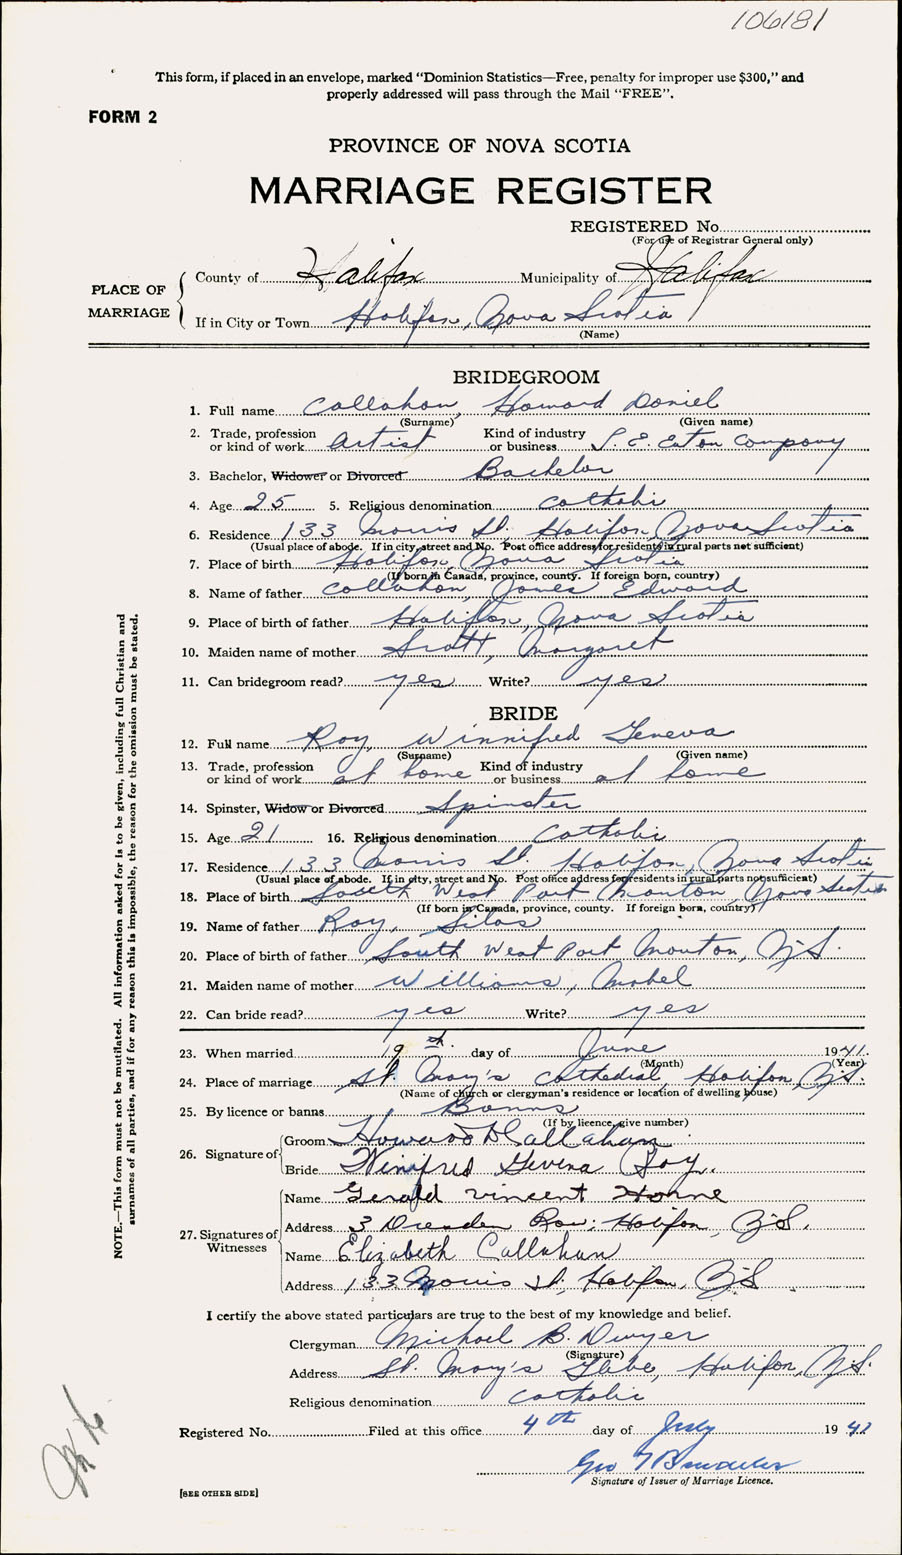 106181
This form, if placed in an envelope, marked "Dominion Statistics—Free, penalty for improper use $300," and
properly addressed will pass through the Mail "FREE".
FORM 2
PROVINCE OF NOVA SCOTIA
MARRIAGE REGISTER
REGISTERED No.
(For use of Registrar General only)
PLACE OF MARRIAGE
County of Halifax Municipality of Halifax
If in City or Town Halifax, Nova Scotia
(Name)
BRIDEGROOM
1. Full name Callahan, Howard Daniel
(Surname) (Given name)
2. Trade, profession or kind of work Artist Kind of industry or business T. E. Eaton Company
3. Bachelor, Widower or Divorced Bachelor
4. Age 25 5. Religious denomination Catholic
6. Residence 133 Morris St. Halifax, Nova Scotia
(Usual place of abode. If in city, street and No. Post office address for residents in rural parts not sufficient)
7. Place of birth Halifax, Nova Scotia
(If born in Canada, province, county. If foreign born, country)
8. Name of father Callahan, James Edward
9. Place of birth of father Halifax, Nova Scotia
10. Maiden name of mother Scott, Margaret
11. Can bridegroom read? yes Write? yes
BRIDE
12. Full name Roy, Winnifred Geneva
(Surname) (Given name)
13. Trade, profession or kind of work at home Kind of industry or business at home
14. Spinster, Widow or Divorced Spinster
15. Age 21 16. Religious denomination Catholic
17. Residence 133 Morris St. Halifax, Nova Scotia
(Usual place of abode. If in city, street and No. Post office address for residents in rural parts not sufficient)
18. Place of birth South West Port Mouton, Nova Scotia
(If born in Canada, province, county. If foreign born, country)
19. Name of father Roy, Silas
20. Place of birth of father South West Port Mouton, N.S.
21. Maiden name of mother Williams, Mabel
22. Can bride read? yes Write? yes
23. When married 19th. day of June 1941.
(Month) (Year)
24. Place of marriage St. Mary's Cathedral, Halifax, N.S.
(Name of church or clergyman's residence or location of dwelling house)
25. By licence or banns Banns
(If by licence, give number)
26. Signature of
Groom Howard D Callahan
Bride Winifred Gevena Roy.
27. Signatures of Witnesses
Name Gerald Vincent Horne
Address 3 Dresden Row; Halifax, N.S.
Name Elizabeth Callahan
Address 133 Morris St. Halifax, N.S
I certify the above stated particulars are true to the best of my knowledge and belief.
Clergyman Michael B. Dwyer
(Signature)
Address St. Mary's Glebe, Halifax, N.S.
Religious denomination Catholic
Registered No. Filed at this office 4th day of July 1941
Geo
Signature of Issuer of Marriage Licence.
[SEE OTHER SIDE]
NOTE.—This form must not be mutilated. All information asked for is to be given, including full Christian and
surnames of all parties, and if for any reason this is impossible, the reason for the omission must be stated.